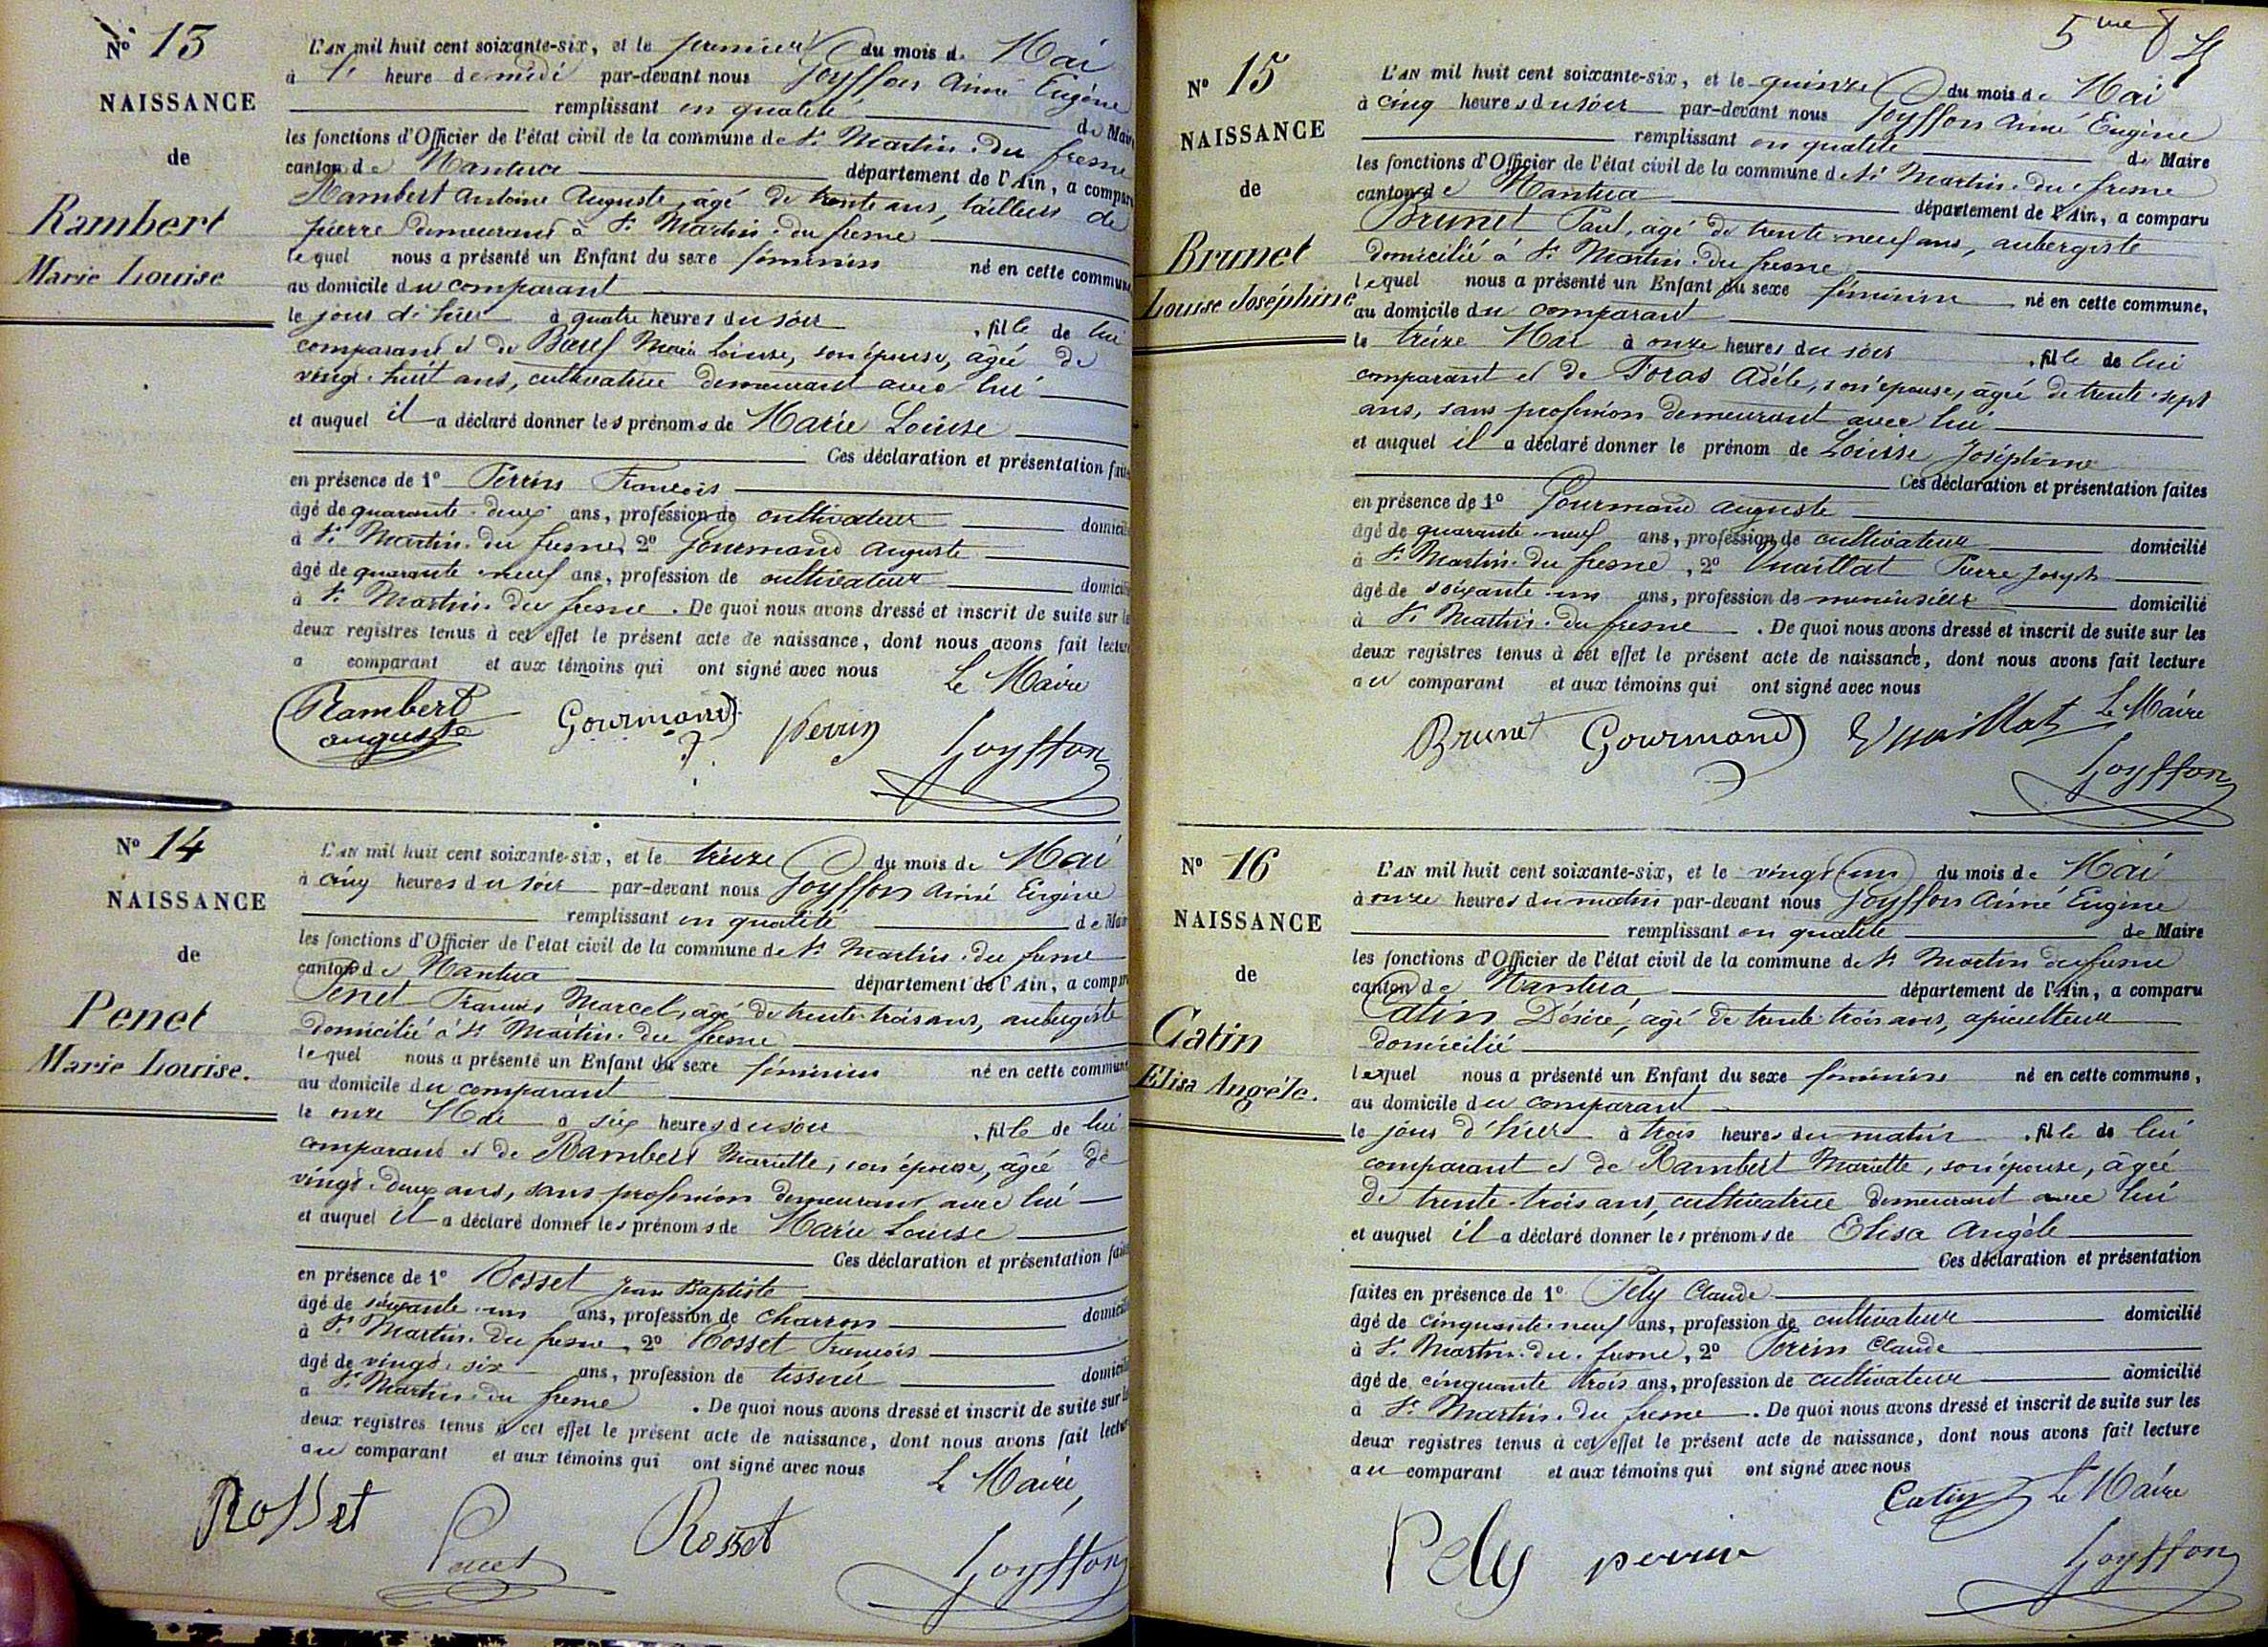 Nº 13
NAISSANCE
de
Rambert
Marie Louise
L'AN mil huit cent soixante-six, et le premier du mois de Mai
à 1 heure de midi par-devant nous Goyffon Aimé Eugène
remplissant en qualité de Maire
les fonctions d'Officier de l'état civil de la commune de St Martin-du-fresne
canton de Nantua département de l'Ain, a comparu
Rambert Antoine Auguste, âgé de trente ans, tailleur de
pierre demeurant à St Martin-du-fresne
lequel nous a présenté un Enfant du sexe féminin né en cette commune
au domicile du comparant
le jour d'hier à quatre heures du soir, fille de lui
comparant et de Bœuf Marie Louise, son épouse, âgée de
vingt-huit ans, cultivatrice demeurant avec lui
et auquel il a déclaré donner les prénoms de Marie Louise
Ces déclaration et présentation faites
en présence de 1º Perrin François
âgé de quarante-deux ans, profession de cultivateur domicilié
à St Martin-du-fresne, 2º Gourmand Auguste
âgé de quarante-neuf ans, profession de cultivateur domicilié
à St Martin-du-fresne. De quoi nous avons dressé et inscrit de suite sur les
deux registres tenus à cet effet le présent acte de naissance, dont nous avons fait lecture
a comparant et aux témoins qui ont signé avec nous Le Maire
Rambert auguste Gourmand Perrin Goyffon
Nº 14
NAISSANCE
de
Penet
Marie Louise.
L'AN mil huit cent soixante-six, et le treize du mois de Mai
à cinq heures du soir par-devant nous Goyffon Aimé Eugène
remplissant en qualité de Maire
les fonctions d'Officier de l'état civil de la commune de St Martin-du-fresne
canton de Nantua département de l'Ain, a comparu
Penet François Marcel, âgé de trente-trois ans, aubergiste
domicilié à St Martin-du-fresne
lequel nous a présenté un Enfant du sexe féminin né en cette commune
au domicile du comparant
le onze Mai à six heures du soir, fille de lui
comparant et de Rambert Mariette, son épouse, âgée de
vingt-deux ans, sans profession demeurant avec lui
et auquel il a déclaré donner les prénoms de Marie Louise
Ces déclaration et présentation faites
en présence de 1º Rosset Jean Baptiste
âgé de soixante-un ans, profession de charron domicilié
à St Martin-du-fresne, 2º Rosset François
âgé de vingt-six ans, profession de tissier domicilié
à St Martin-du-fresne. De quoi nous avons dressé et inscrit de suite sur les
deux registres tenus à cet effet le présent acte de naissance, dont nous avons fait lecture
au comparant et aux témoins qui ont signé avec nous Le Maire,
Rosset Penet Rosset Goyffon
5me f
Nº 15
NAISSANCE
de
Brunet
Louise Joséphine
L'AN mil huit cent soixante-six, et le quinze du mois de Mai
à cinq heures du soir par-devant nous Goyffon Aimé Eugène
remplissant en qualité de Maire
les fonctions d'Officier de l'état civil de la commune de St Martin-du-fresne
canton de Nantua département de l'Ain, a comparu
Brunet Paul, âgé de trente-neuf ans, aubergiste
domicilié à St Martin-du-fresne
lequel nous a présenté un Enfant du sexe féminin né en cette commune,
au domicile du comparant
le treize Mai à onze heures du soir, fille de lui
comparant et de Foras Adèle, son épouse, âgée de trente-sept
ans, sans profession demeurant avec lui
et auquel il a déclaré donner le prénom de Louise Joséphine
Ces déclaration et présentation faites
en présence de 1º Gourmand Auguste
âgé de quarante-neuf ans, profession de cultivateur domicilié
à St Martin-du-fresne, 2º Vuaillat Pierre Joseph
âgé de soixante-un ans, profession de menuisier domicilié
à St Martin-du-fresne. De quoi nous avons dressé et inscrit de suite sur les
deux registres tenus à cet effet le présent acte de naissance, dont nous avons fait lecture
au comparant et aux témoins qui ont signé avec nous Le Maire
Brunet Gourmand Vuaillat Goyffon
Nº 16
NAISSANCE
de
Catin
Elisa Angèle.
L'AN mil huit cent soixante-six, et le vingt un du mois de Mai
à onze heures du matin par-devant nous Goyffon Aimé Eugène
remplissant en qualité de Maire
les fonctions d'Officier de l'état civil de la commune de St Martin du fresne
canton de Nantua, département de l'Ain, a comparu
Catin Désiré, âgé de trente-trois ans, apiculteur
domicilié
lequel nous a présenté un Enfant du sexe féminin né en cette commune,
au domicile du comparant
le jour d'hier à trois heures du matin, fille de lui
comparant et de Rambert Mariette, son épouse, âgée
de trente-trois ans, cultivatrice demeurant avec lui
et auquel il a déclaré donner les prénoms de Elisa Angèle
Ces déclaration et présentation
faites en présence de 1º Pely Claude
âgé de cinquante-neuf ans, profession de cultivateur domicilié
à St Martin-du-fresne, 2º Perrin Claude
âgé de cinquante trois ans, profession de cultivateur domicilié
à St Martin-du-fresne. De quoi nous avons dressé et inscrit de suite sur les
deux registres tenus à cet effet le présent acte de naissance, dont nous avons fait lecture
au comparant et aux témoins qui ont signé avec nous
Catin Le Maire
Pely perrin Goyffon